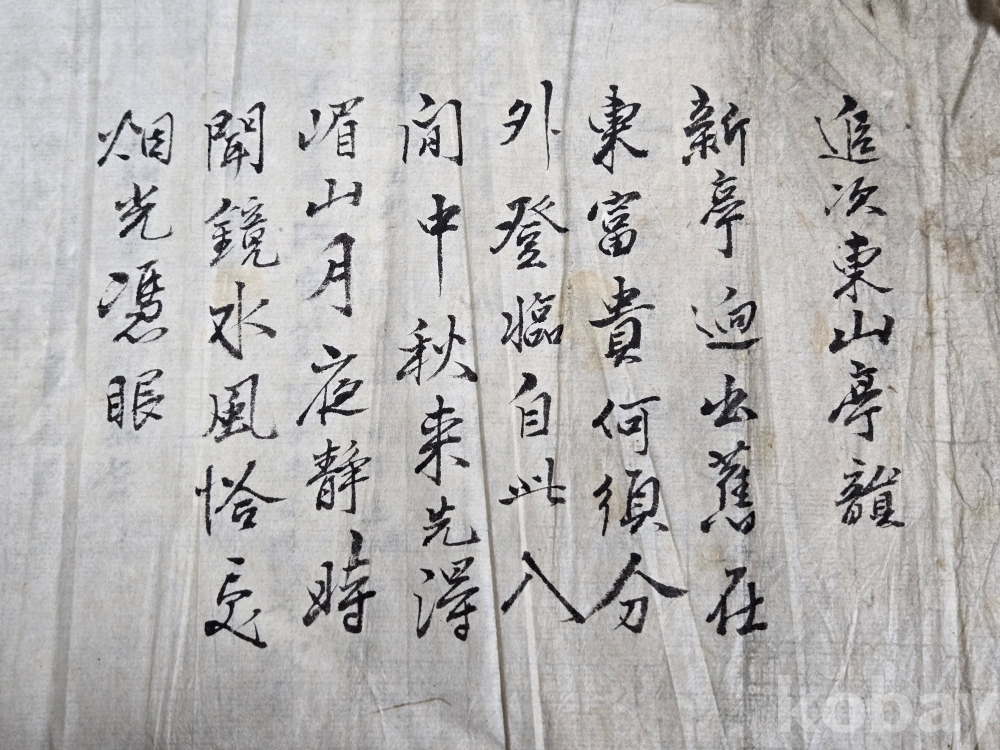 追次東山亭韻
新亭逈出舊在
東富貴何須分
外登臨自此入
間中秋來先得
嵋山月夜靜時
聞鏡水風恰處
烟光憑眼
kobay